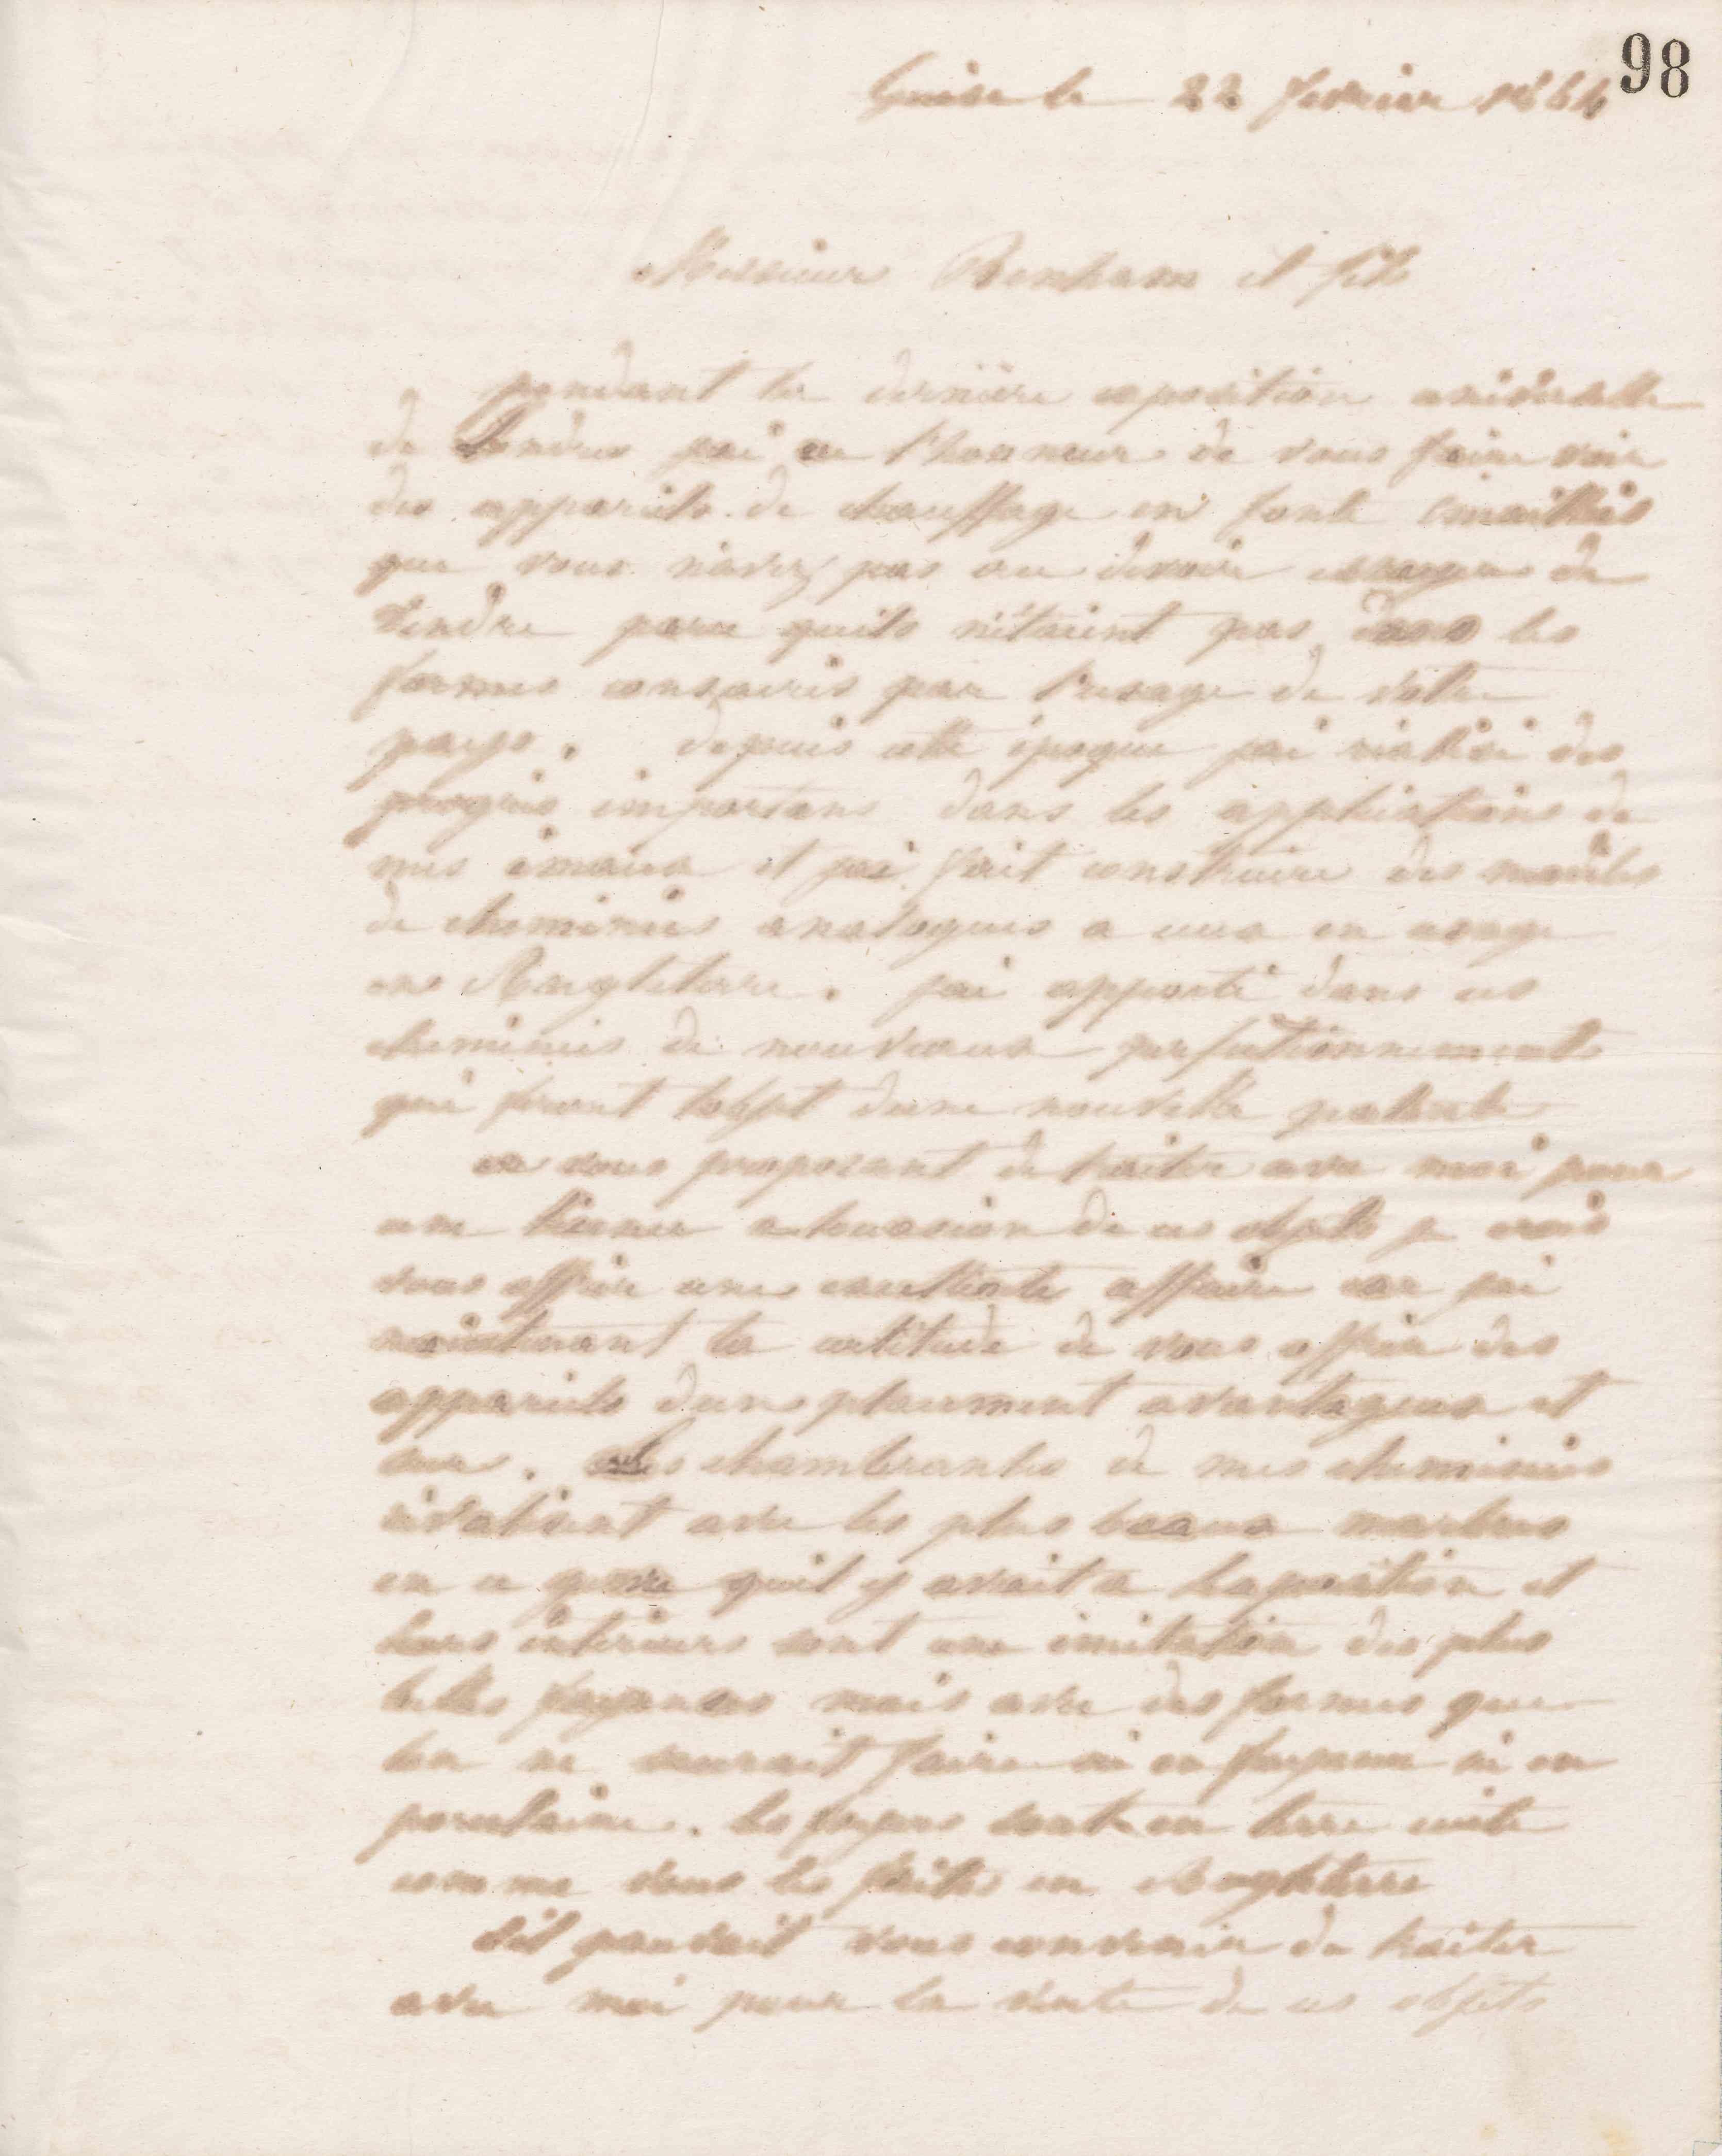 98
Guise le 22 fevrier 1864
Messieurs Benham et fils
pendant la dernière exposition universelle
de Londres jai eu l'honneur de vous faire voir
des appareils de chauffage en fonte émaillés
que vous n'avez pas cru devoir essayer de
vendre parce quils n'étaient pas dans les
formes consacrés par l'usage de votre
pays. depuis cette époque jai réalisé des
progrès importans dans les applications de
mes émaux et jai fait construire des meubles
de cheminées analogues a ceux en usage
en Angleterre. jai apporté dans ces
cheminées de nouveaux perfectionnements
qui feront lobjet dune nouvelle patente
en vous proposant de traiter avec moi pour
une licence a loccasion de ces objets je crois
vous offrir une excellente affaire car jai
maintenant la certitude de vous offrir des
appareils dun placement avantageux et
sur. Les chambranles de mes cheminées
rivalisent avec les plus beaux marbres
en ce genre quil y avait a lexposition et
leurs intérieurs sont une imitation des plus
belles fayences mais avec des formes que
lon ne saurait faire ni en fayence ni en
porcelaine. les foyers sont en terre cuite
comme vous les faites en Angleterre
Sil pouvait vous convenir de traiter
avec moi pour la vente de ces objets